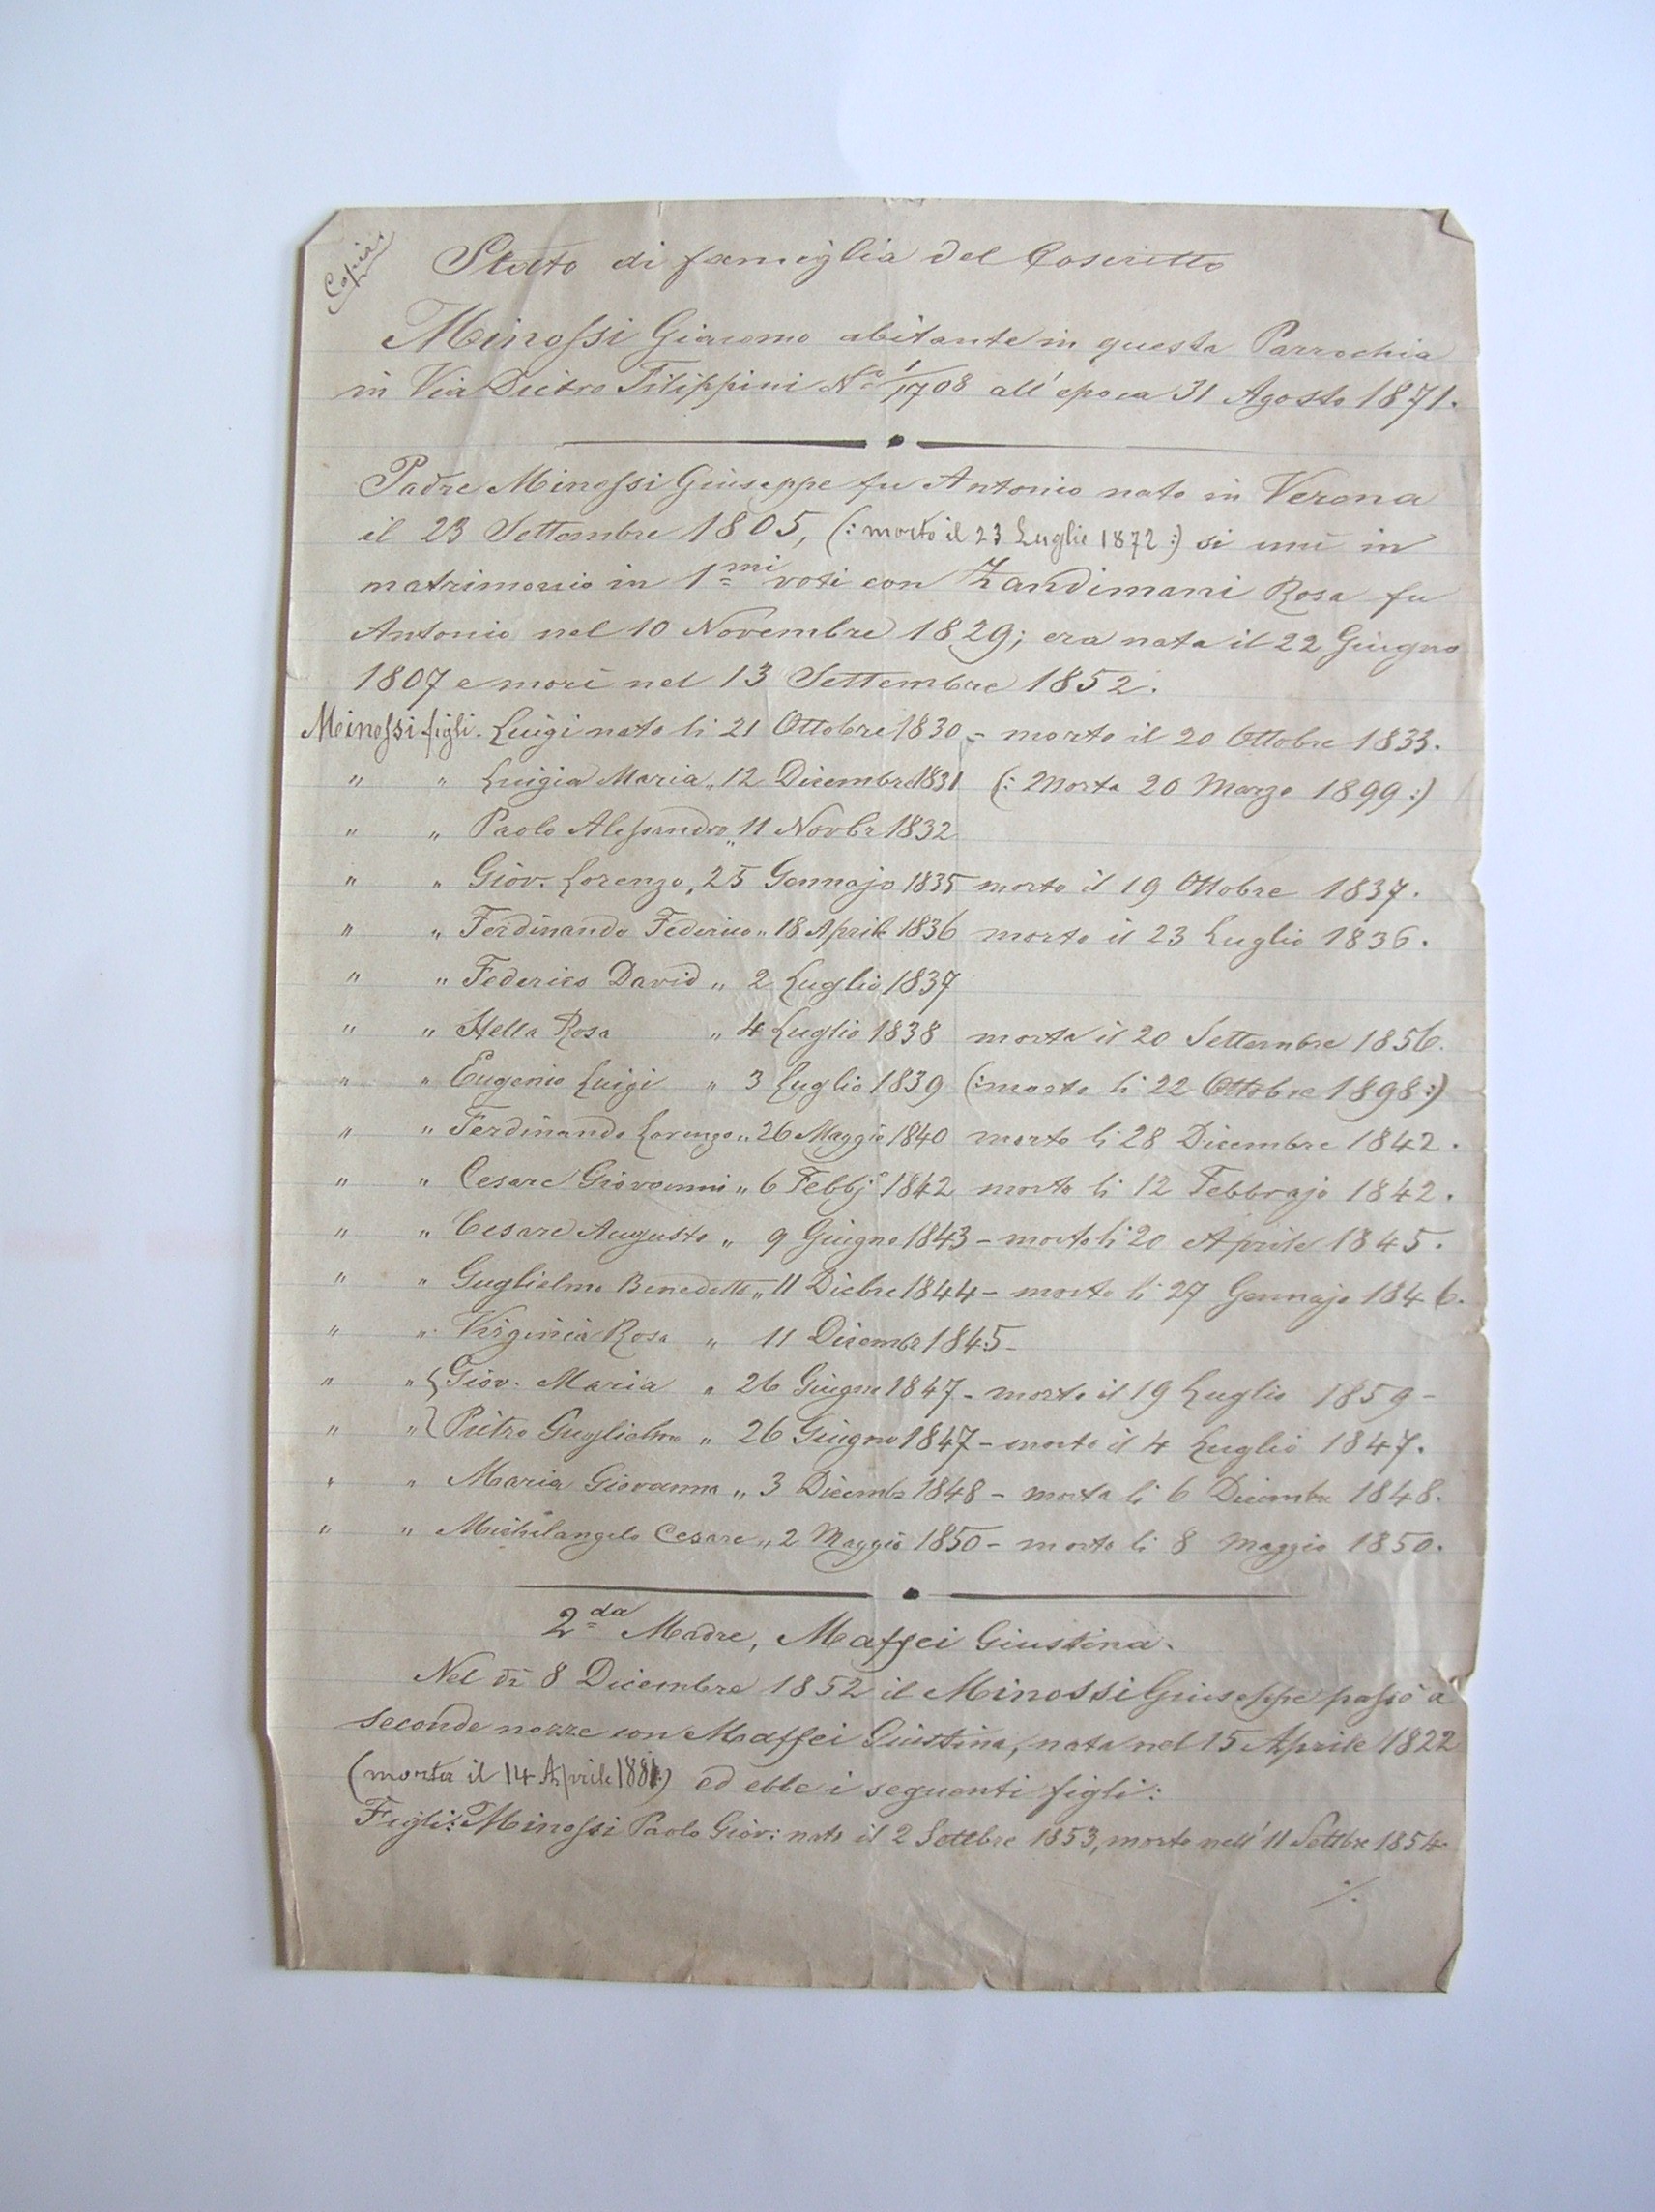 Copia.
Stato di famiglia del Coscritto
Minossi Giacomo abitante in questa Parrochia
in Via Dietro Filippini N.º 1/1708 all' epoca 31 Agosto 1871.
Padre Minossi Giuseppe fu Antonio nato in Verona
il 23 Settembre 1805, (: morto il 23 Luglio 1872 :) si unì in
matrimonio in 1mi voti con Zandimani Rosa fu
Antonio nel 10 Novembre 1829; era nata il 22 Giugno
1807 e morì nel 13 Settembre 1852.
Minossi figli. Luigi nato li 21 Ottobre 1830 - morto il 20 Ottobre 1833.
" " Luigia Maria " 12 Dicembre 1831 (: Morta 20 Marzo 1899 :)
" " Paolo Alessandro " 11 Novbr 1832
" " Giov. Lorenzo, 25 Gennajo 1835 morto il 19 Ottobre 1837.
" " Ferdinando Federico " 18 Aprile 1836 morto il 23 Luglio 1836.
" " Federico David " 2 Luglio 1837
" " Stella Rosa " 4 Luglio 1838 morta il 20 Settembre 1856.
" " Eugenio Luigi " 3 Luglio 1839 (: morto li 22 Ottobre 1898 :)
" " Ferdinando Lorenzo " 26 Maggio 1840 morto li 28 Dicembre 1842.
" " Cesare Giovanni " 6 Febbjº 1842 morto li 12 Febbrajo 1842.
" " Cesare Augusto " 9 Giugno 1843 - morto li 20 Aprile 1845.
" " Guglielmo Benedetto " 11 Dicbre 1844 - morto li 27 Gennajo 1846.
" " Virginia Rosa " 11 Dicembr 1845 -
" " { Giov. Maria " 26 Giugno 1847 - morto il 19 Luglio 1859 -
" " } Pietro Guglielmo " 26 Giugno 1847 - morto il 4 Luglio 1847.
" " Maria Giovanna " 3 Dicembr 1848 - morta li 6 Dicembr 1848.
" " Michelangelo Cesare " 2 Maggio 1850 - morto li 8 Maggio 1850.
2da Madre, Maffei Giustina.
Nel dì 8 Dicembre 1852 il Minossi Giuseppe passò a
seconde nozze con Maffei Giustina, nata nel 15 Aprile 1822
(morta il 14 Aprile 1881:) ed ebbe i seguenti figli:
Figli: Minossi Paolo Giov: nato il 2 Settbre 1853, morto nell' 11 Settbre 1854
./.